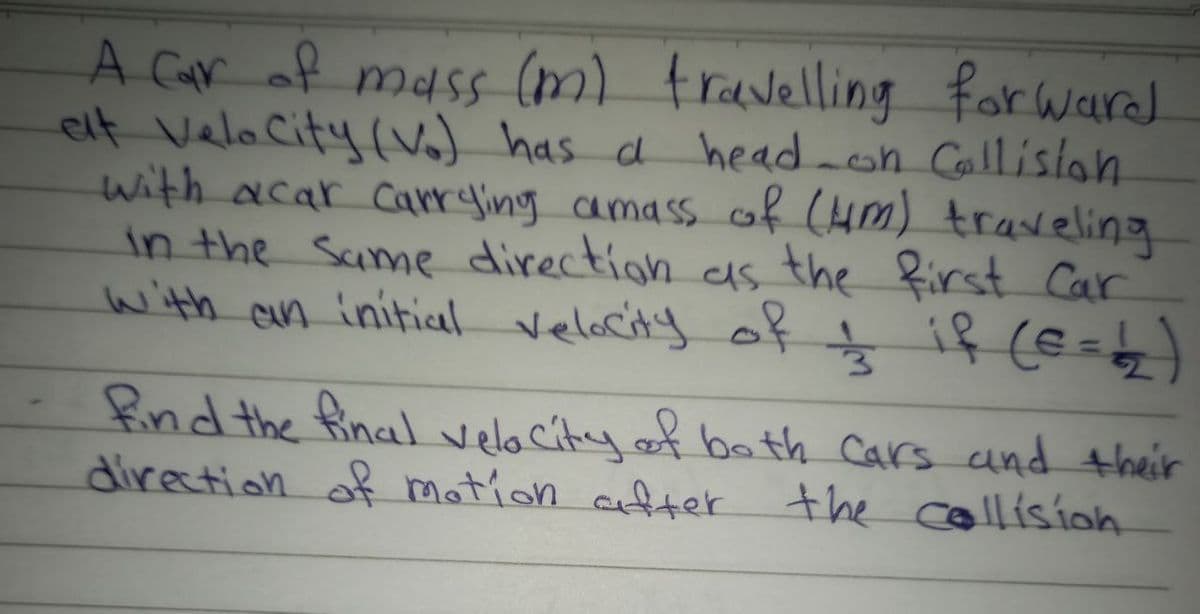 A Car of mass (m) travelling forward
at velocity (V₀) has a head-on Collision
with acar Carrying amass of (4m) traveling
in the Same direction as the first Car
with an initial velocity of 1/3 if (ϵ=1/2)
find the final velocity of both Cars and their
direction of motion after the collision